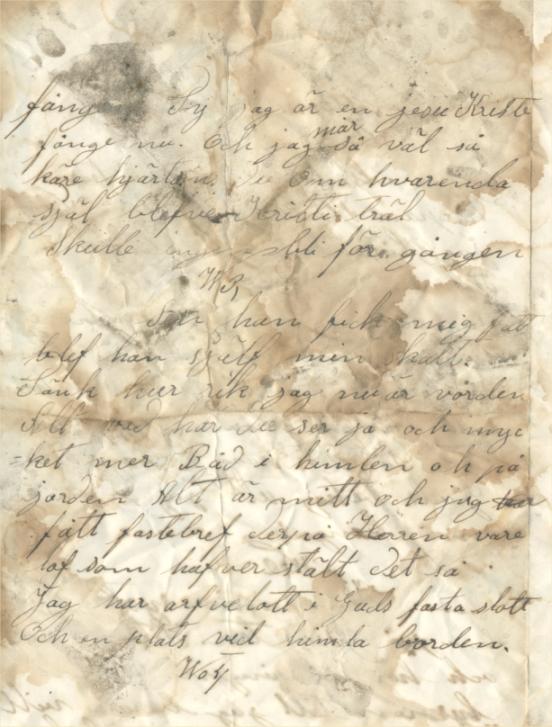 fång Ty jag är en jesu Kristi
fånge nu. Och jag mår så väl så
käre hjärtan. Om hvarenda
själ blefve Kristi träl
skulle ingen bli förgången
han fick mig fatt
blef han själf min skatt.
Tänk hur rik jag nu är vorden
Allt vad har se ser ja och myc
=ket mer Båd i himlen och på
jorden Alt är mitt och jag har
fått fastebref derpå Herren vare
lof som hafver stält det så
Jag har arfvelott i Guds fasta slott
Och en plats vid himla borden.